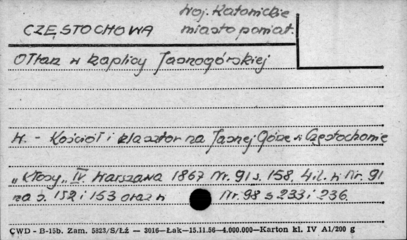 CZĘSTOCHOWA
Woj. Katowickie
miasto powiat.
Ołtarz w kaplicy Jasnogórskiej
W. - Kościół i klasztor na Jasnej Górze w Częstochowie
„Kłosy" IV. Warszawa 1867 Nr. 91 s. 158, 4 il. w Nr. 91
na s. 152 i 153 oraz w Nr. 98 s 233 i 236.
ĆWD - B-15b. Zam. 5823/S/Łź — 3016—Łak—15.11.56—4.000.000—Karton kl. IV A1/200 g